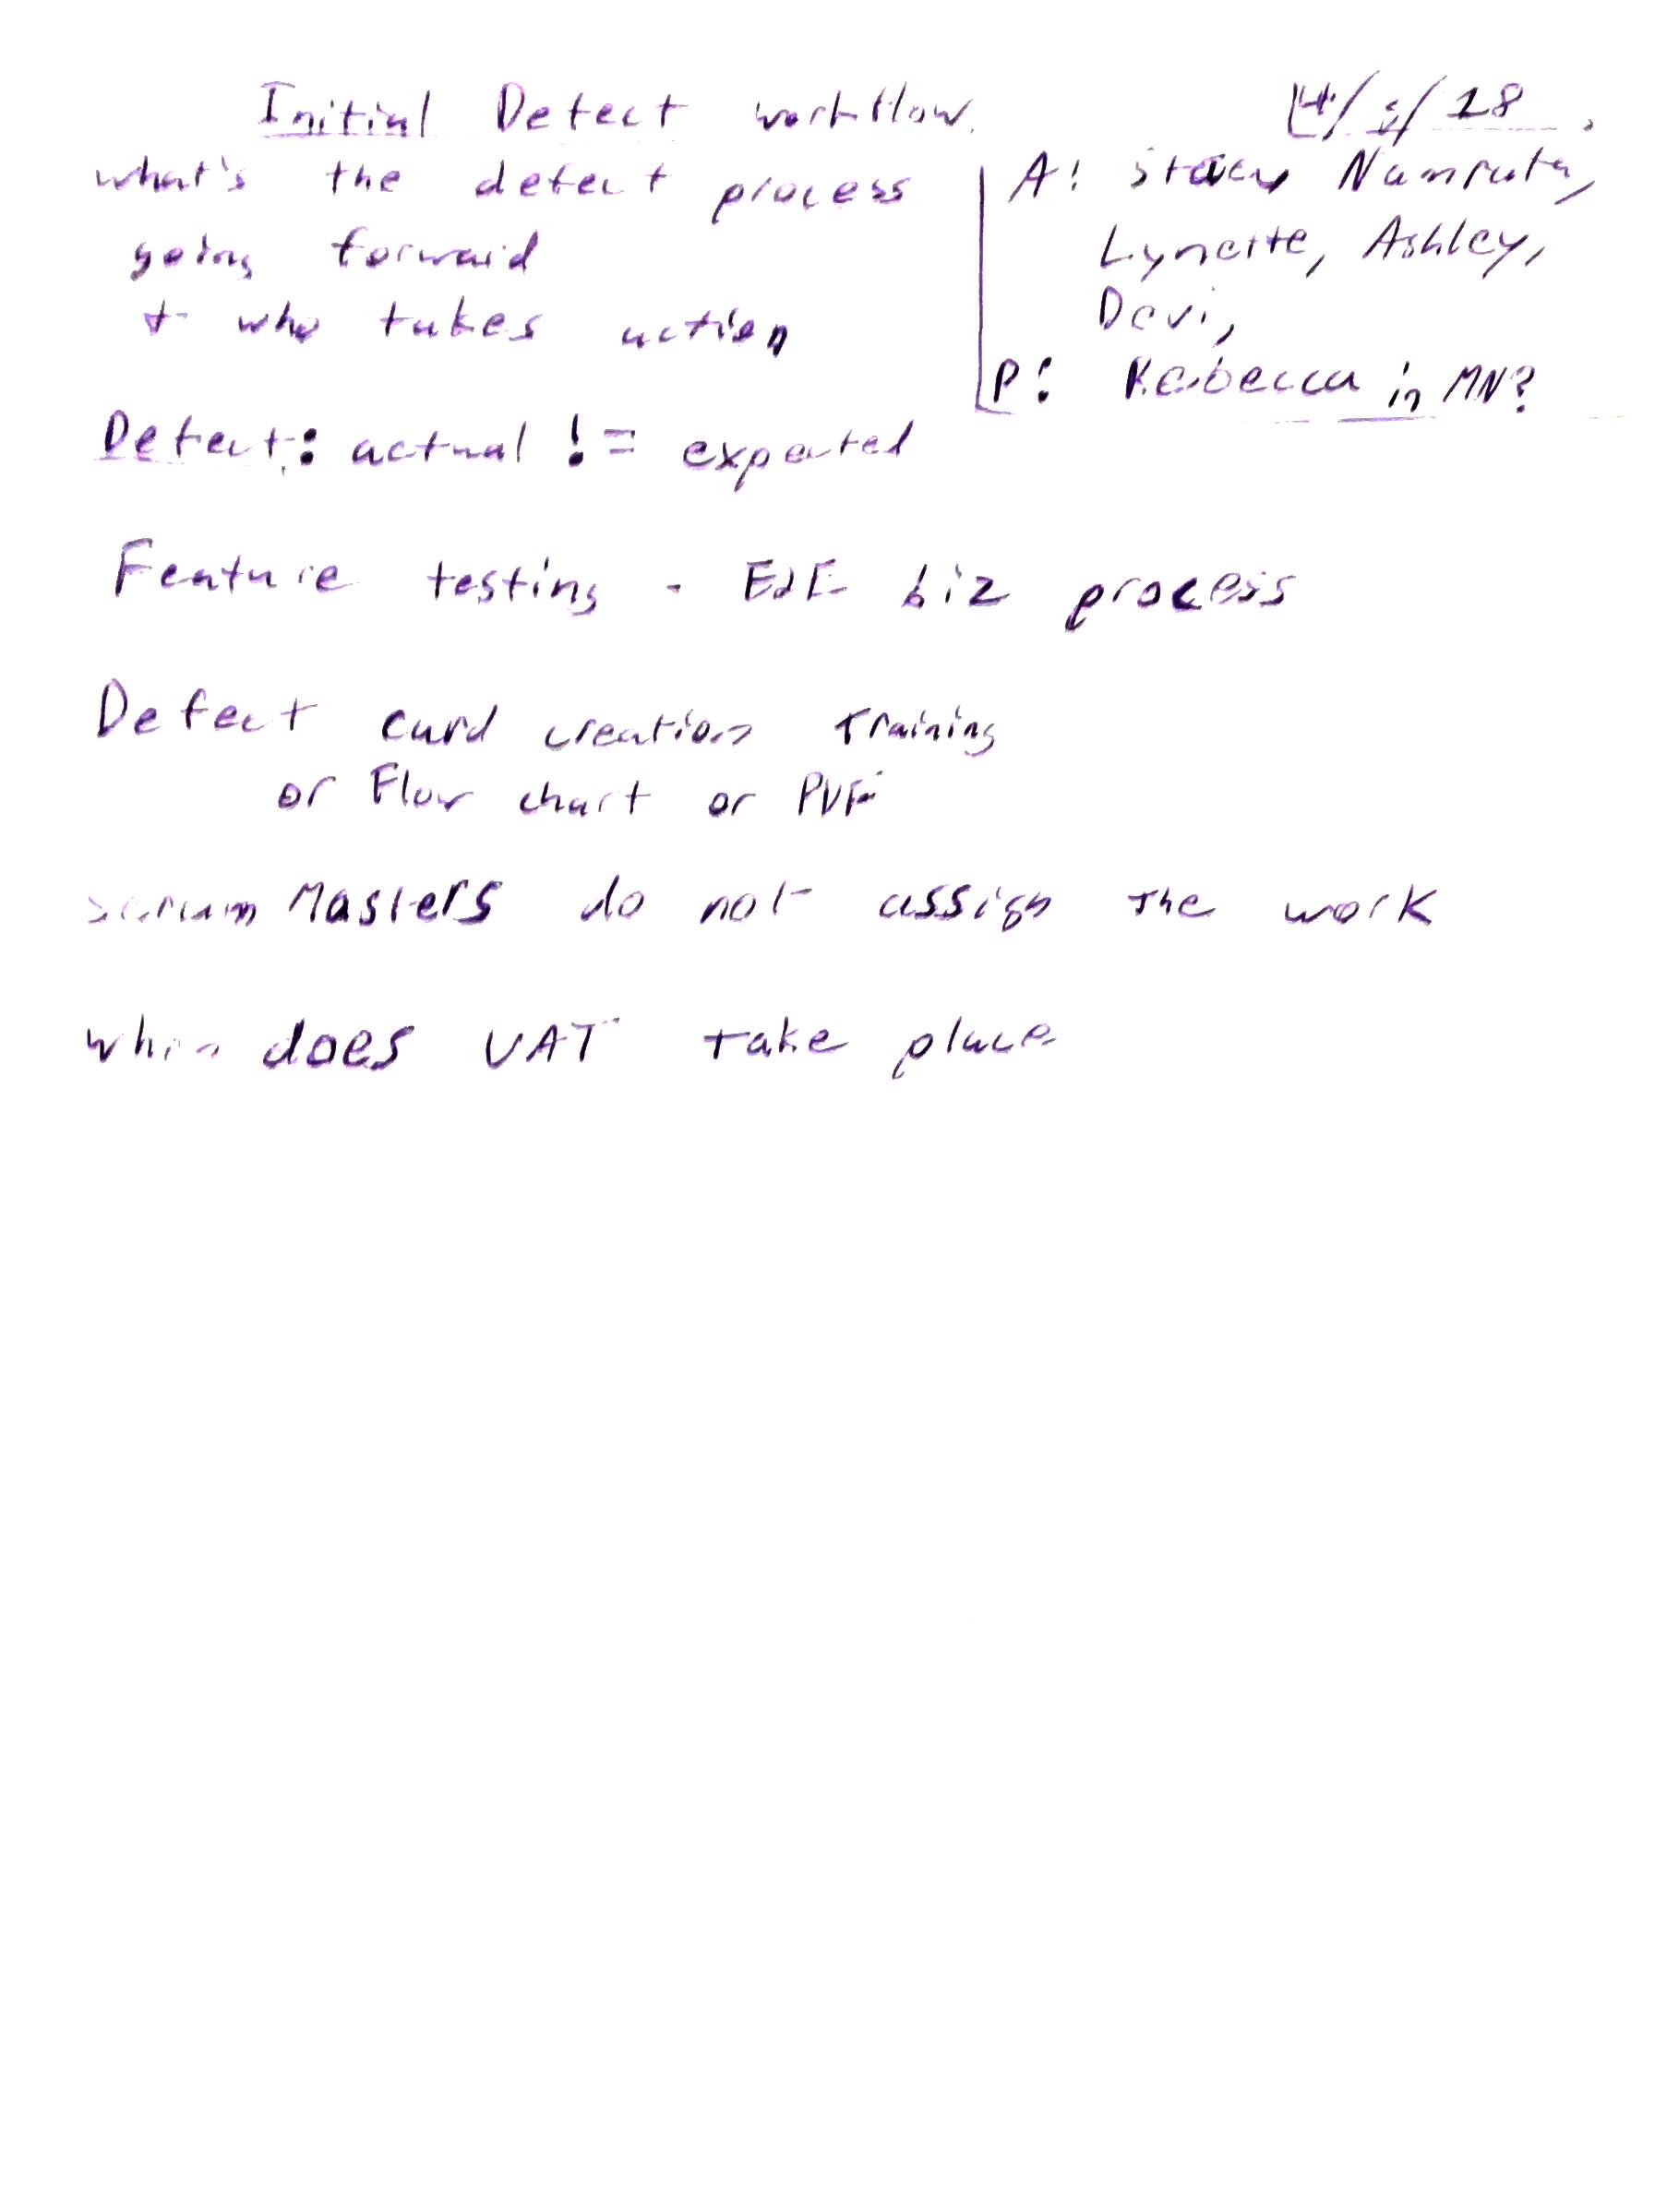 Initial Defect workflow.
what's the defect process
going forward
+ who takes action
A: Stacy Namrata,
Lynette, Ashley,
Devi,
P: Rebecca in MN?
Defect: actual != expected
Feature testing - E2E biz process
Defect card creation training
or Flow chart or
scrum Masters do not assign the work
When does UAT take place